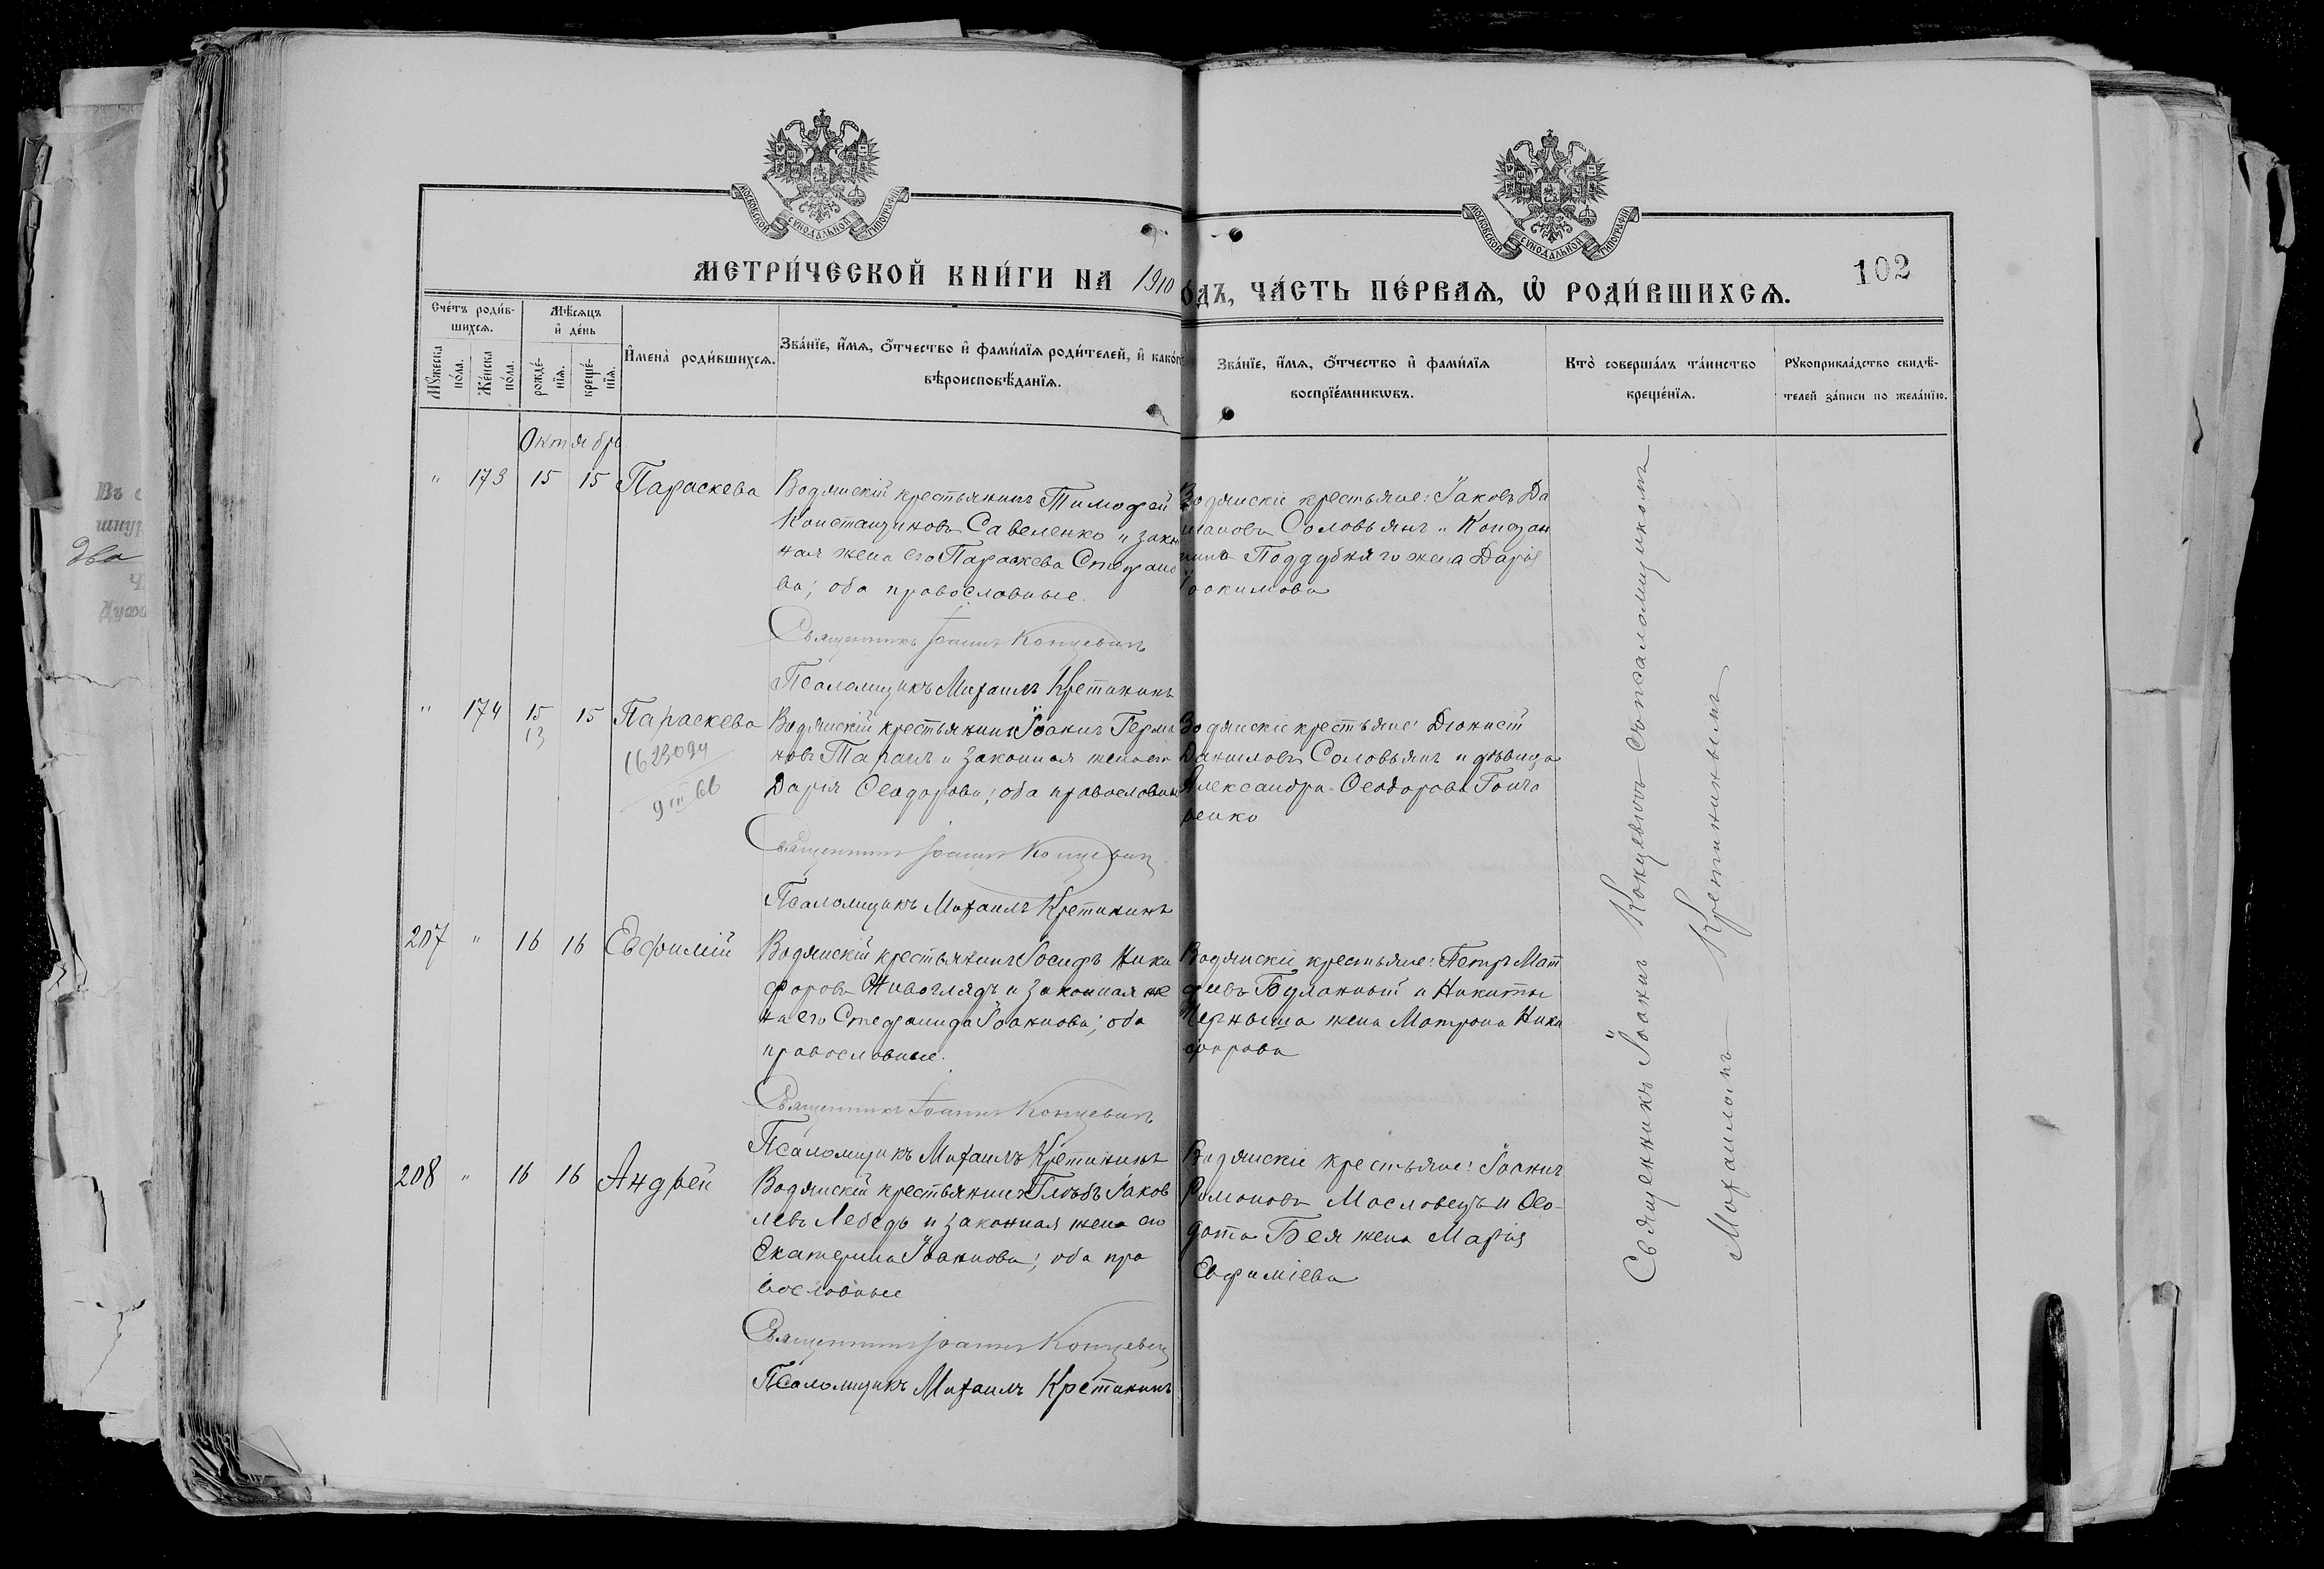 МОСКОВСКОЙ СѴНОДАЛЬНОЙ ТИПОГРАФІИ
МОСКОВСКОЙ СѴНОДАЛЬНОЙ ТИПОГРАФІИ
102
МЕТРИ́ЧЕСКОЙ КНИ́ГИ НА 1910
о́дъ, ЧА́СТЬ ПЕ́РВАЯ, Ѡ РОДИ́ВШИХСЯ.
Сче́тъ роди́в-
шихся.
Мꙋ́жеска по́ла.
Же́нска по́ла.
Мѣ́сяцъ
и де́нь
рожде́-
нїя.
креще́-
нїя.
И҆мена̀ роди́вшихся.
Зва́нїе, и҆́мя, ѻ҆́тчество и҆ фами́лїя роди́телей, и҆ како́г
вѣроисповѣ́данїя.
Зва́нїе, и҆́мя, ѻ҆́тчество и҆ фами́лїя
воспрїе́мникѡвъ.
Кто̀ соверша́лъ та́инство
креще́нїя.
Рꙋкоприкла́дство свидѣ́-
телей за́писи по жела́нїю.
Октябрь
" 173 15 15 Параскева
Водянскій крестьянинъ Тимофей
Константиновъ Савеленко и закон
ная жена его Параскева Стефано
ва; оба православные.
Священникъ Іоаннъ Концевичъ
Псаломщикъ Михаилъ Кретининъ
Водянскіе крестьяне: Іаковъ Да
Соловьянъ и
Поддубняго жена Дарія
Іоакимова
" 174 15 15 Параскева
13
1623094
9 III 66
Водянскій крестьянинъ Іоаннъ Герма
новъ Таранъ и законная жена его
Дарія Ѳеодорова; оба православные
Священникъ Іоаннъ Концевичъ
Псаломщикъ Михаилъ Кретининъ
Водянскіе крестьяне: Діонисій
Даниловъ Соловьянъ и дѣвица
Александра Ѳеодорова Гонча
ренко
207 " 16 16 Евфимій
Водянскій крестьянинъ Іосифъ Ники
форовъ Живоглядъ и законная же
на его Стефанида Іоаннова; оба
православные.
Священникъ Іоаннъ Концевичъ
Псаломщикъ Михаилъ Кретининъ
Водянскіе крестьяне: Петръ Мат
фіевъ Буланный и Никиты
Черныша жена Матрона Ники
форова
208 " 16 16 Андрей
Водянскій крестьянинъ Глѣбъ Іаков
левъ Лебедь и законная жена его
Екатерина Іоаннова; оба пра
вославные
Священникъ Іоаннъ Концевичъ
Псаломщикъ Михаилъ Кретининъ
Водянскіе крестьяне: Іоаннъ
Романовъ Масловецъ и Ѳео-
дота Бея жена Марія
Евфиміева
Священникъ Іоаннъ Концевичъ съ псаломщикомъ
Михаиломъ Кретининымъ